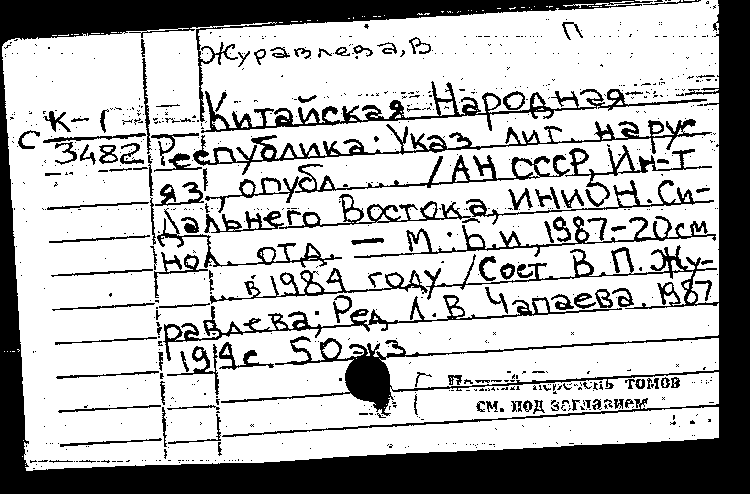 Журавлева, В П
Китайская Народная
С К-1
3482 Республика: Указ. лит. на рус
яз., опубл. .... / АН СССР, Ин-т
Дальнего Востока, ИНИОН. Си-
нол. отд. — М.: Б.и., 1987.- 20 см.
... в 1984 году. / Сост. В. П. Жу-
равлева; Ред. Л. В. Чапаева. 1987.
194 с. 50 экз.
Полный перечень томов
см. под заглавием